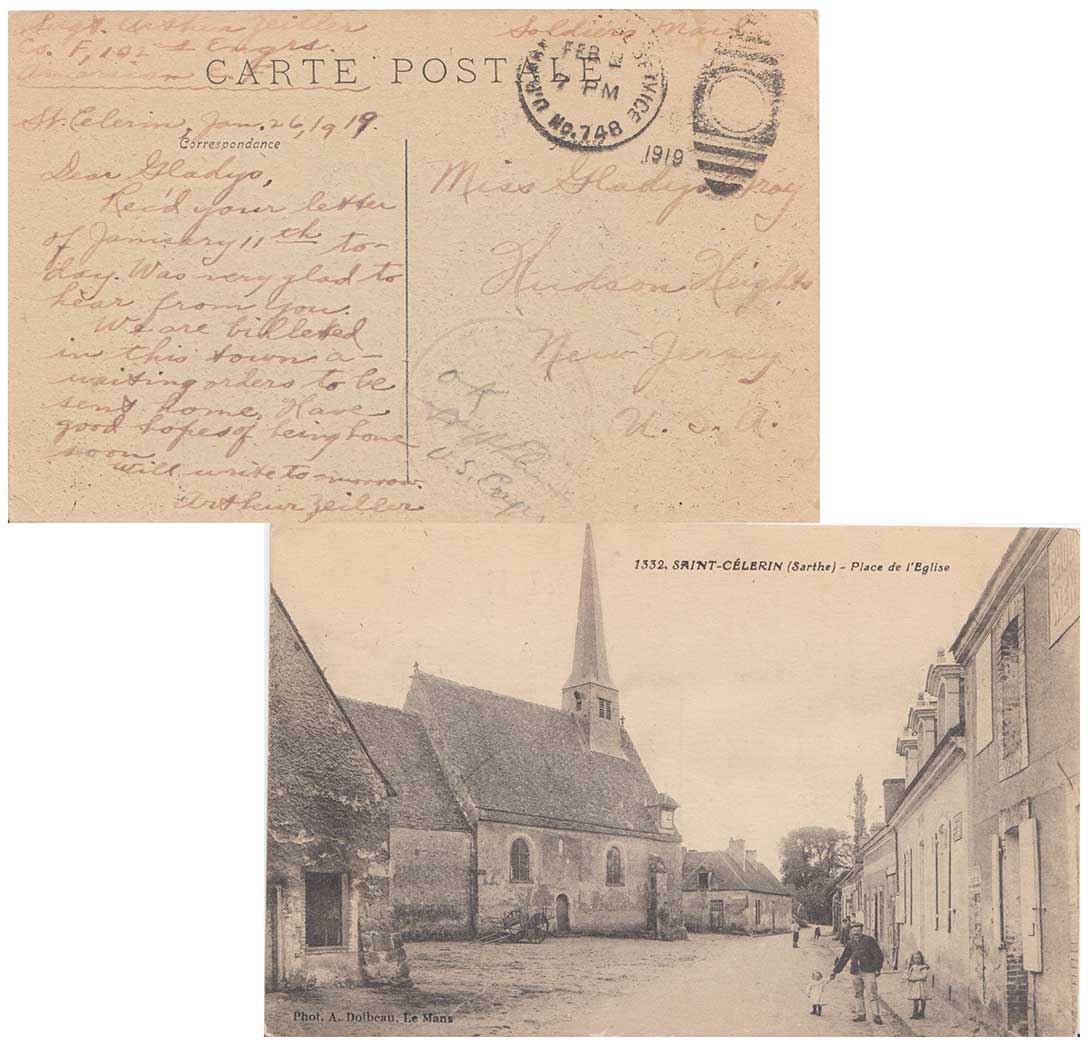 Sagt. Arthur Zeiller
Co. F, 102nd Engrs.
American
Soldiers Mail
CARTE POSTALE
FEB
7 PM
SERVICE
No. 748
1919
St. Celerin, Jan. 26, 1919.
Correspondance
Dear Gladys,
Rec'd your letter
of January 11th to-
day. Was very glad to
hear from you.
We are billeted
in this town a-
waiting orders to be
sent home. Have
good hopes of being home
soon
Will write to-morrow.
Arthur Zeiller
Miss Gladys Gray
Hudson Heights
New Jersey
U. S. A.
OK
U.S. Engr.
1332. SAINT-CÉLERIN (Sarthe) - Place de l'Eglise
Phot. A. Dolbeau, Le Mans